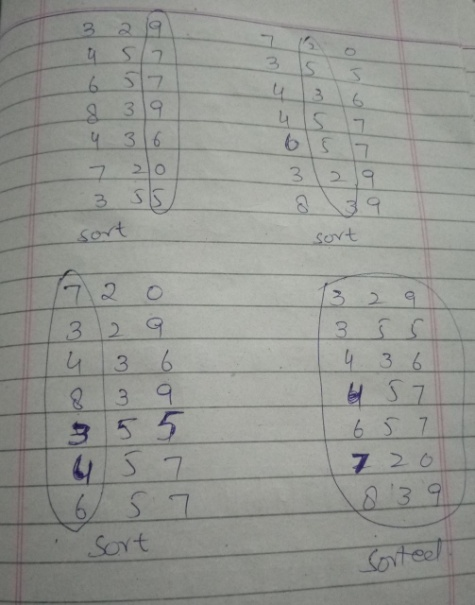 3 2 9
4 5 7
6 5 7
8 3 9
4 3 6
7 2 0
3 5 5
sort
7 2 0
3 5 5
4 3 6
4 5 7
6 5 7
3 2 9
8 3 9
sort
7 2 0
3 2 9
4 3 6
8 3 9
3 5 5
4 5 7
6 5 7
Sort
3 2 9
3 5 5
4 3 6
4 5 7
6 5 7
7 2 0
8 3 9
Sorted